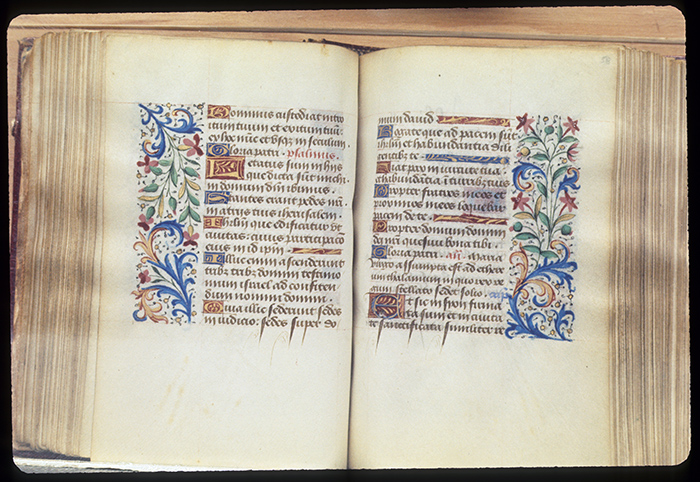 Dominus custodiat intro
itum tuum et exitum tuū
ex hoc nūc et usqꝫ in seculum.
Gloria patri. psalmus.
Letatus sum in hys
que dicta sūt michi
in domum dn̄i ibimus.
Stantes erāt pedes nr̄i
in atrys tuis iherusalem.
Ihrl̄m que edificatur vt
ciuitas: cuius participacō
eius in id ipm̄.
Illuc enim ascenderunt
tribꝫ tribꝫ domini testimo
nium israel ad confiten
dum nomini domini.
Quia illic sederunt sedes
in iudicio: sedes super do
mum dauid
Rogate que ad pacem sūt
ihrl̄m et habundantia dili
gentibꝫ te.
Fiat pax in uirtute tua
et habundātia ī turribꝫ tuis
Propter fratres meos et
proximos meos loquebar
pacem de te.
Propter domum domini
dei nr̄i quesiui bona tibi.
Gloria patri. an̄. Maria
uirgo assumpta est ad ethere
um thalamum in quo rex re
gum stellato sedet solio.
Et sic in syon firma
ta sum et in ciuita
te sanctificata similiter re